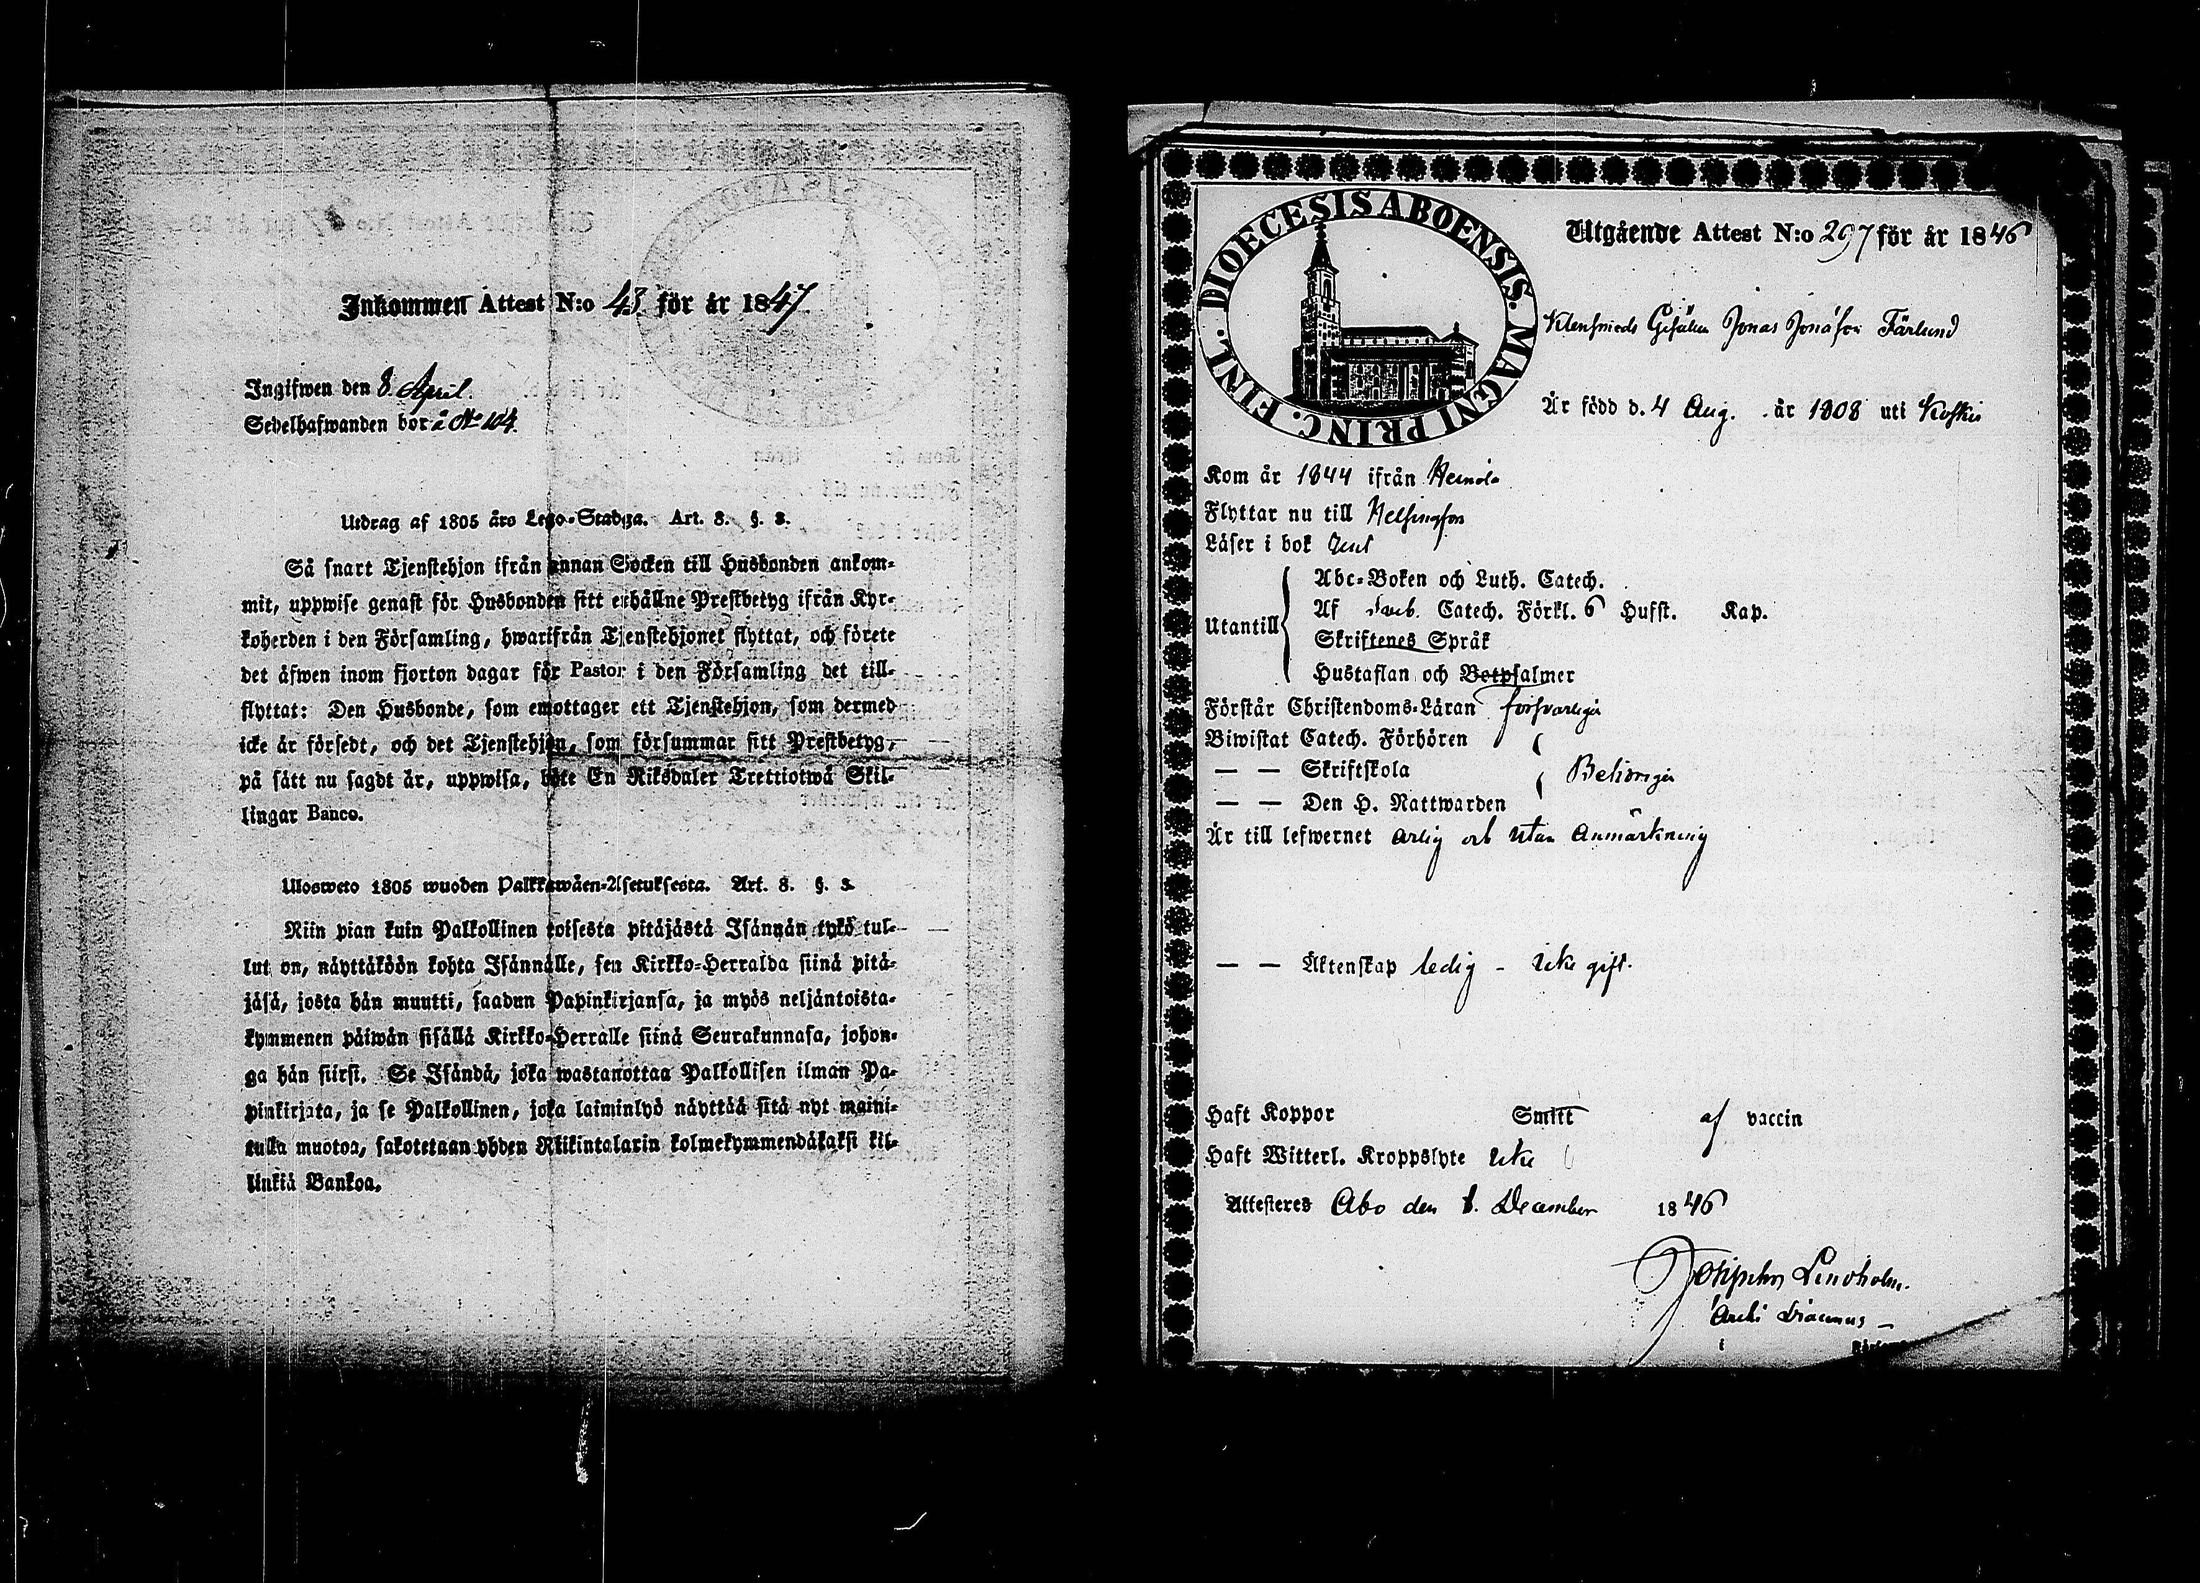 Inkommen Attest N:o 43 för år 1847.
Ingifwen den 8 April.
Sedelhafwanden bor å No 104.
Utdrag af 1805 års Lego-Stadga. Art. 8. §. 3.
Så snart Tjenstehjon ifrån annan Socken till Husbonden ankom-
mit, uppwise genast för Husbonden sitt erhållne Prestbetyg ifrån Kyr-
koherden i den Församling, hwarifrån Tjenstehjonet flyttat, och förete
det äfwen inom fjorton dagar för Pastor i den Församling det till-
flyttat: Den Husbonde, som emottager ett Tjenstehjon, som dermed
icke är försedt, och det Tjenstehjon, som försummar sitt Prestbetyg,
på sätt nu sagdt är, uppwisa, böte En Riksdaler Trettiotwå Skil-
lingar Banco.
Ulosweto 1805 wuoden Palkkawäen-Asetuksesta. Art. 8. §. 3.
Niin pian kuin Palkollinen toisesta pitäjästä Isännän tykö tul-
lut on, näyttäköön kohta Isännälle, sen Kirkko-Herralda siinä pitä-
jäsä, josta hän muutti, saadun Papinkirjansa, ja myös neljäntoista-
kymmenen päiwän sisällä Kirkko-Herralle siinä Seurakunnasa, johon-
ga hän siirsi. Se Isändä, joka wastanottaa Palkollisen ilman Pa-
pinkirjata, ja se Palkollinen, joka laiminlyö näyttää sitä nyt maini-
tulla muotoa, sakotetaan yhden Riikintalarin kolmekymmendäkaksi kil-
linkiä Bankoa.
DIOECESIS ABOENSIS. MAGNI PRINC. FINL.
Utgående Attest N:o 297 för år 1846
Klensmeds Gesällen Jonas Jonasson Färlund
Är född d. 4 Aug. år 1808 uti Koskis
Kom år 1844 ifrån Heinola
Flyttar nu till Helsingfors
Läser i bok
Utantill
Abc-Boken och Luth. Catech.
Af Sveb. Catech. Förkl. 6 Hufst. Kap.
Skriftenes Språk
Hustaflan och Botpsalmer
Förstår Christendoms-Läran försvarligen
Biwistat Catech. Förhören
— — Skriftskola Behörigen
— — Den H. Nattwarden
Är till lefwernet ärlig och utan Anmärkning
— — Äktenskap ledig - icke gift.
Haft Koppor Smitt af vaccin
Haft Witterl. Kroppslyte icke
Attesteres Åbo den 8. December 1846
Lindholm.
Archi Diaconus
i